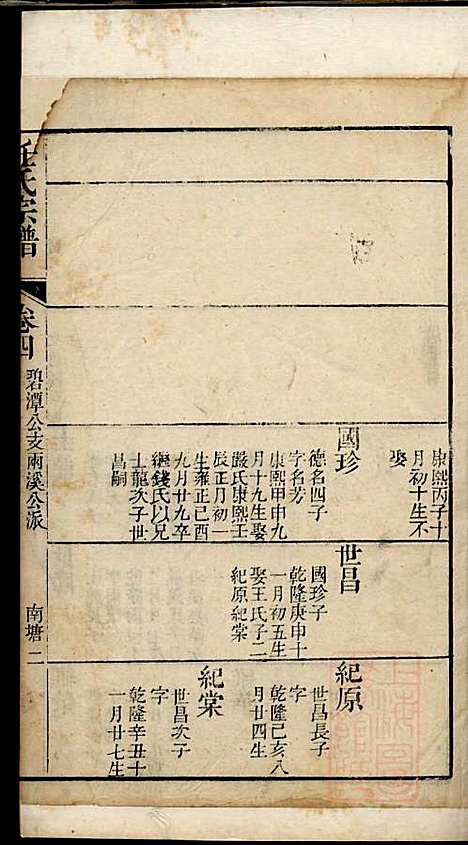 康熙丙子十
月初十生不
娶
國珍
德名四子
字名芳
康熙甲申九
月十九生娶
嚴氏康熙壬
辰正月初一
生雍正己酉
九月廿九卒
繼錢氏以兄
士龍次子世
昌嗣
世昌
國珍子
乾隆庚申十
一月初五生
娶王氏子二
紀原紀棠
紀原
世昌長子
字
乾隆己亥八
月廿四生
紀棠
世昌次子
字
乾隆辛丑十
一月廿七生
任氏宗譜
卷四
碧潭公支兩溪公派
南塘 二